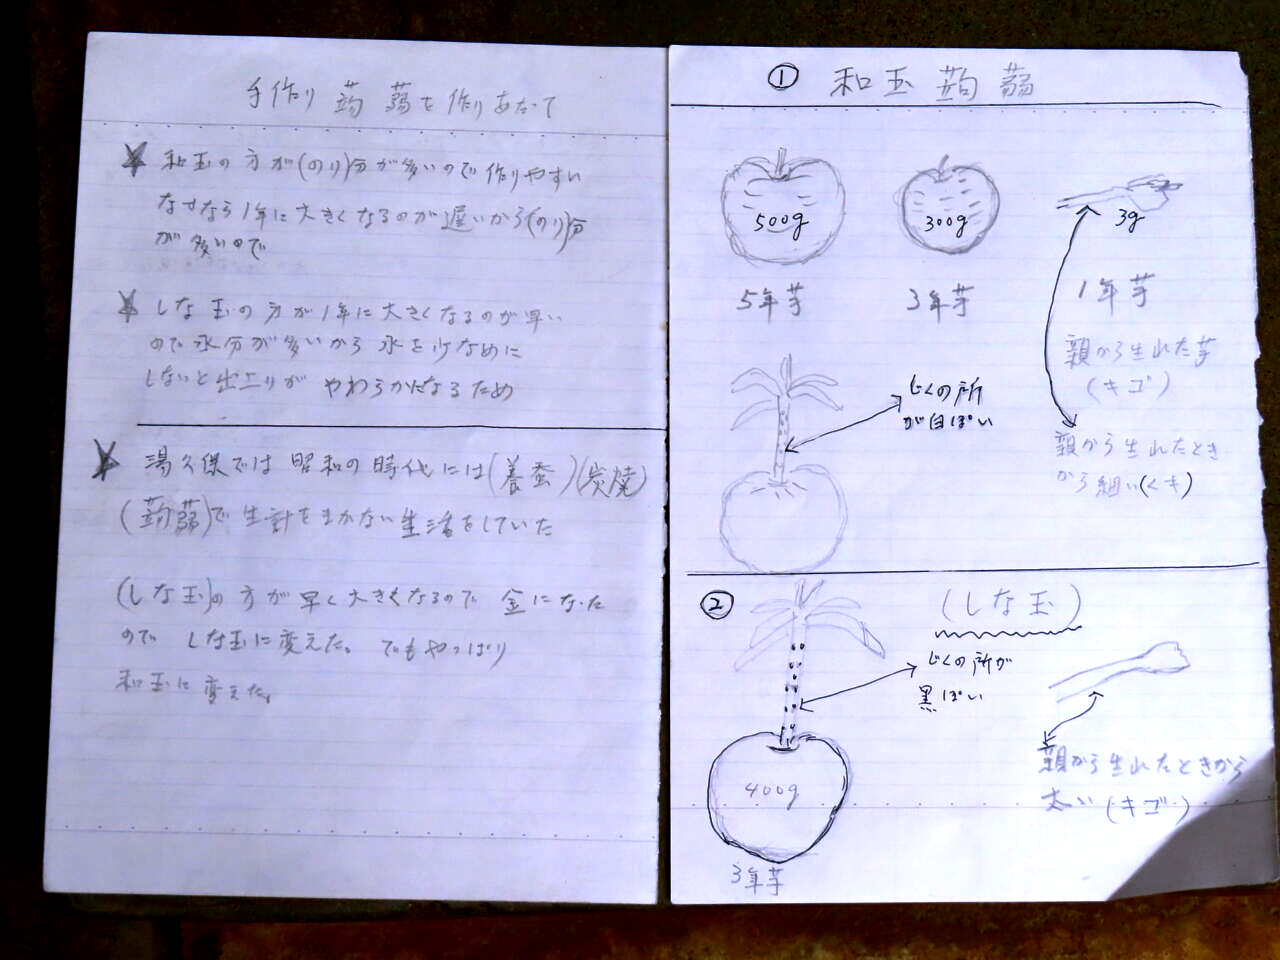 手作り蒟蒻を作りあたって
★ 和玉の方が(のり)分が多いので作りやすい
なぜなら1年に大きくなるのが遅いから(のり)分
が多いので
★ しな玉の方が1年に大きくなるのが早い
ので水分が多いから水を少なめに
しないと出上りがやわらかになるため
★ 湯久保では昭和の時代には(養蚕)(炭焼)
(蒟蒻)で生計をまかない生活をしていた
(しな玉)の方が早く大きくなるので金になった
のでしな玉に変えた。でもやっぱり
和玉に変えた。
① 和玉蒟蒻
500g
300g
3g
5年芋
3年芋
1年芋
親から生れた芋
(キゴ)
じくの所
が白ぽい
親から生れたとき
から細い(くき)
② (しな玉)
じくの所が
黒ぽい
親から生れたときから
太い(キゴ)
400g
3年芋